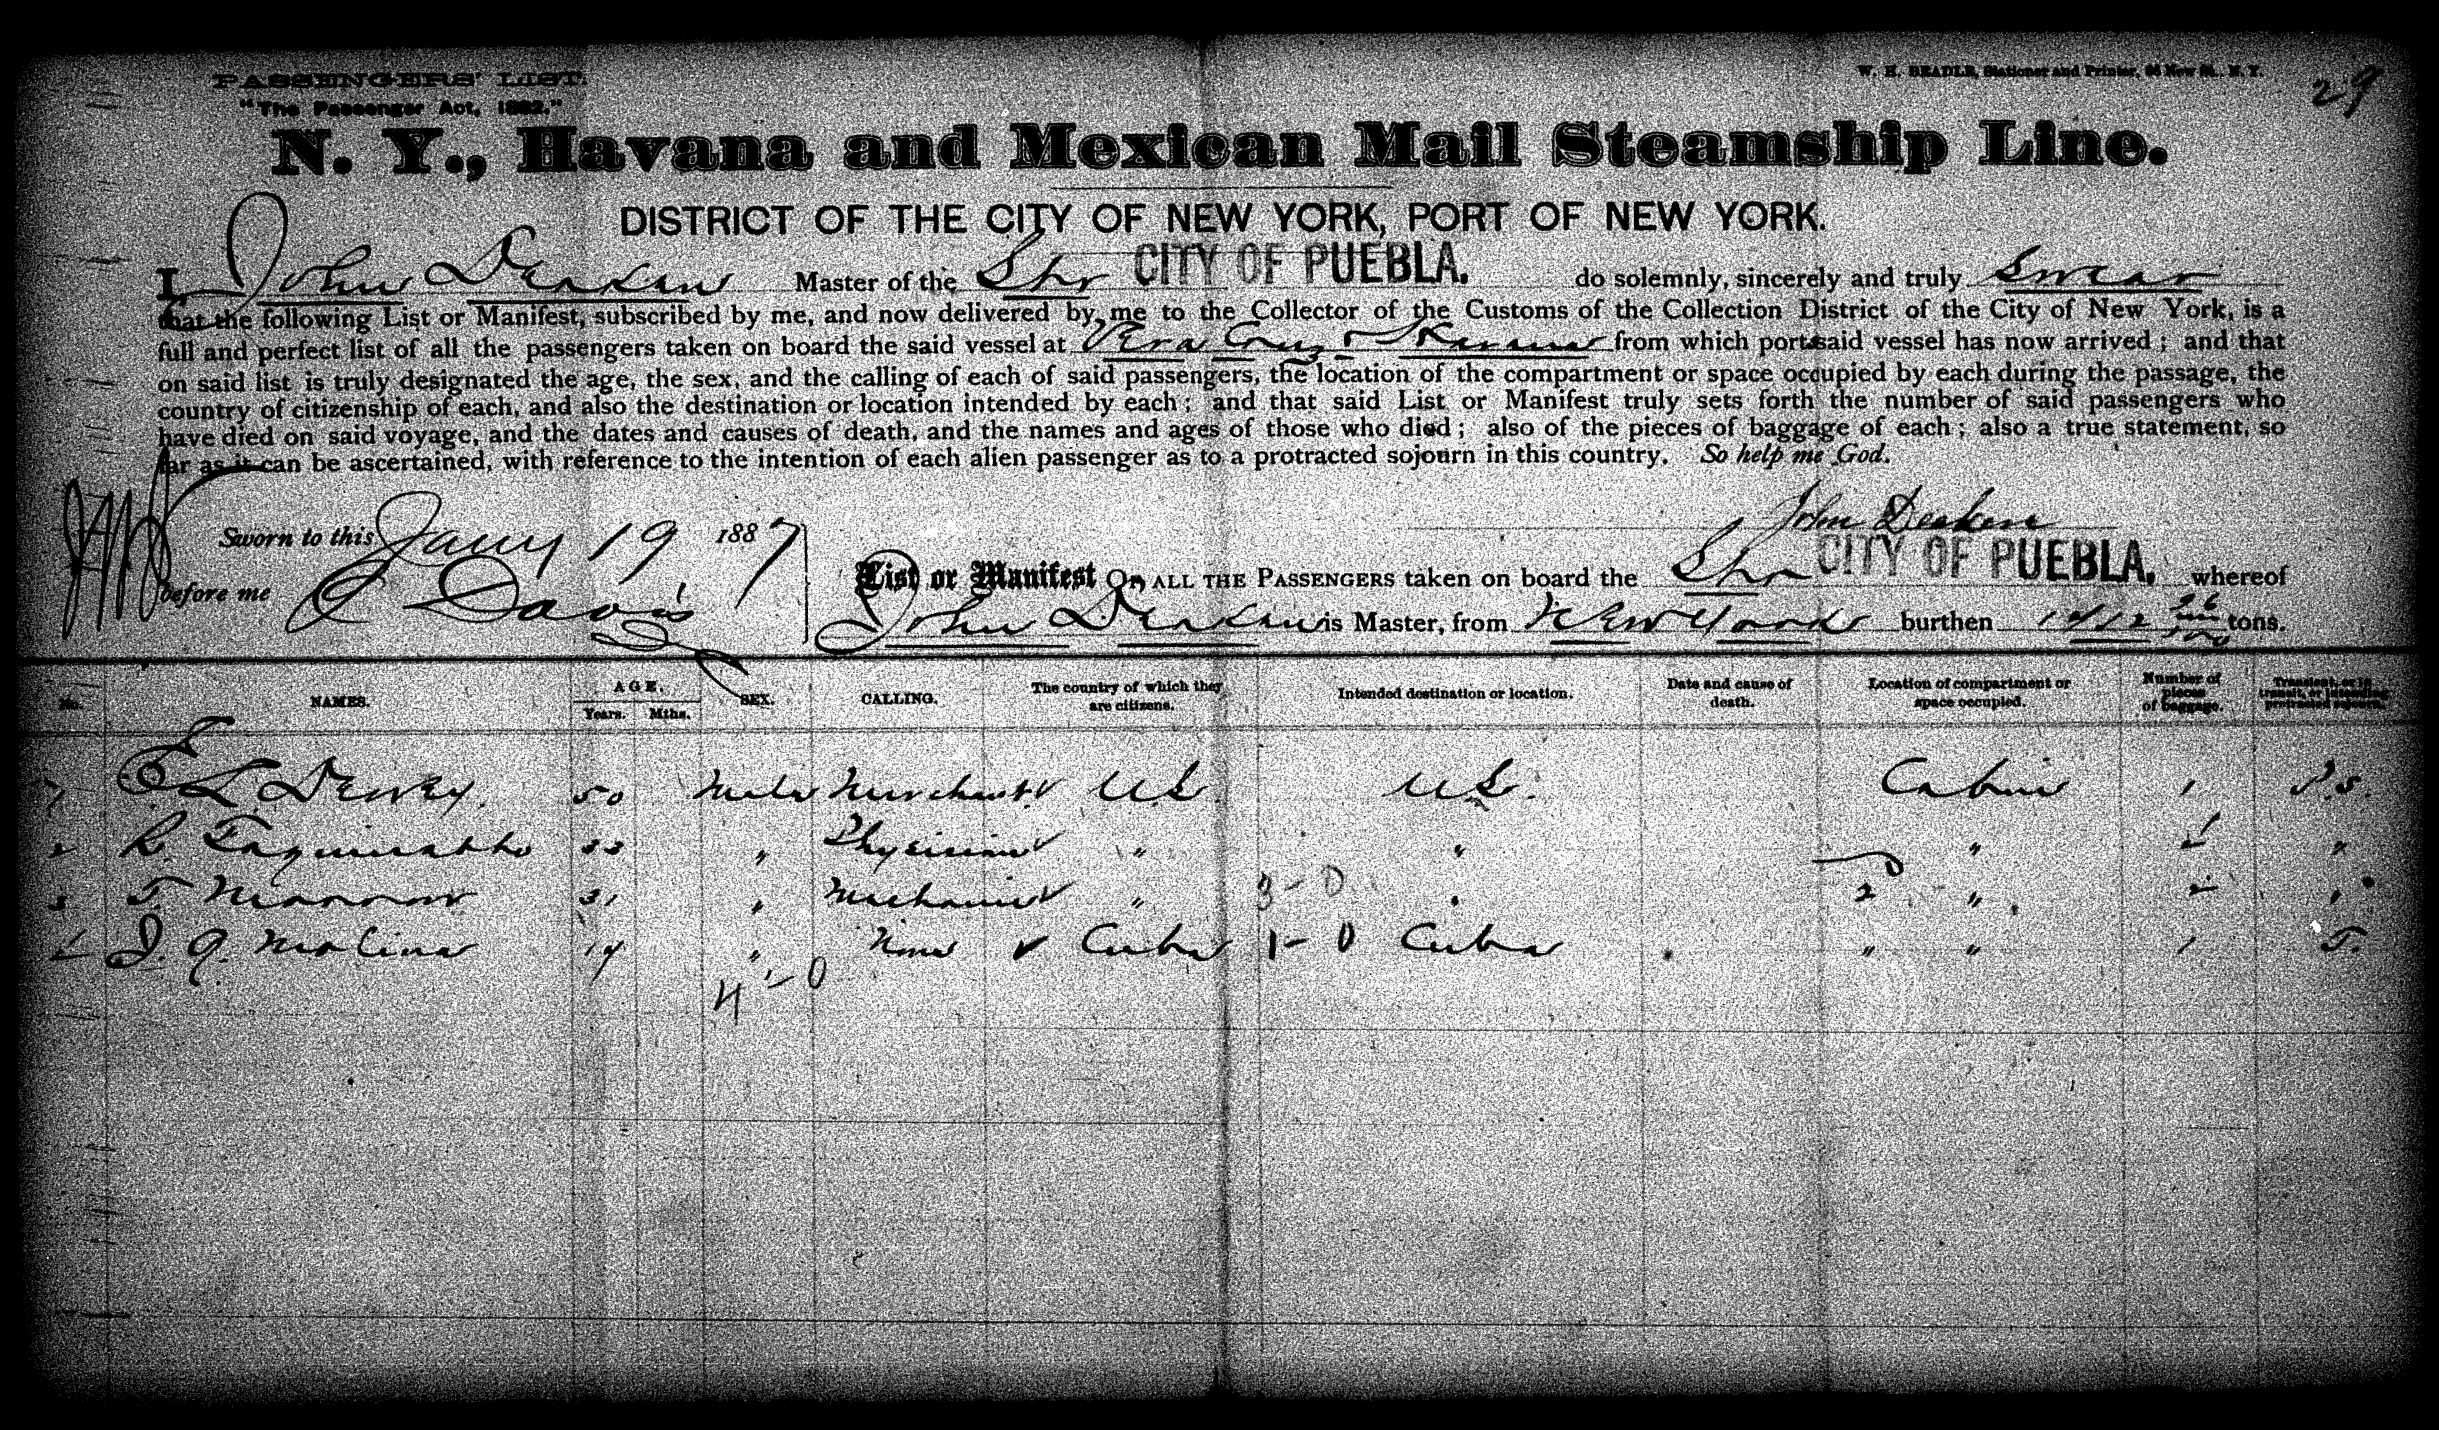 PASSENGERS' LIST.
W. H. BEADLE, Stationer and Printer, New St., N. Y.
29
"The Passenger Act, 1882."
N. Y., Havana and Mexican Mail Steamship Line.
DISTRICT OF THE CITY OF NEW YORK, PORT OF NEW YORK.
I, John Deaken Master of the Str CITY OF PUEBLA. do solemnly, sincerely and truly Swear
that the following List or Manifest, subscribed by me, and now delivered by me to the Collector of the Customs of the Collection District of the City of New York, is a
full and perfect list of all the passengers taken on board the said vessel at Vera Cruz & Havana from which port said vessel has now arrived; and that
on said list is truly designated the age, the sex, and the calling of each of said passengers, the location of the compartment or space occupied by each during the passage, the
country of citizenship of each, and also the destination or location intended by each; and that said List or Manifest truly sets forth the number of said passengers who
have died on said voyage, and the dates and causes of death, and the names and ages of those who died; also of the pieces of baggage of each; also a true statement, so
far as it can be ascertained, with reference to the intention of each alien passenger as to a protracted sojourn in this country. So help me God.
John Deaken
Sworn to this Jany 19 1887
before me C Davis
List or Manifest OF ALL THE PASSENGERS taken on board the Str CITY OF PUEBLA. whereof
John Deaken is Master, from New York burthen tons.
No. NAMES. AGE. Years. Mths. SEX. CALLING. The country of which they are citizens. Intended destination or location. Date and cause of death. Location of compartment or space occupied. Number of pieces of baggage. Transient, or in transit, or intending protracted sojourn.
1 E L Dewey. 50 Male Merchant U.S. U.S. Cabin 1 P.S.
2 R. 33 " Physician " " " "
3 T. Morrow 31 " Mechanic " 3-0 " 2 " 2 "
4 J. A. Molina 19 " None Cuba 1-0 Cuba " " 1 T.
4-0